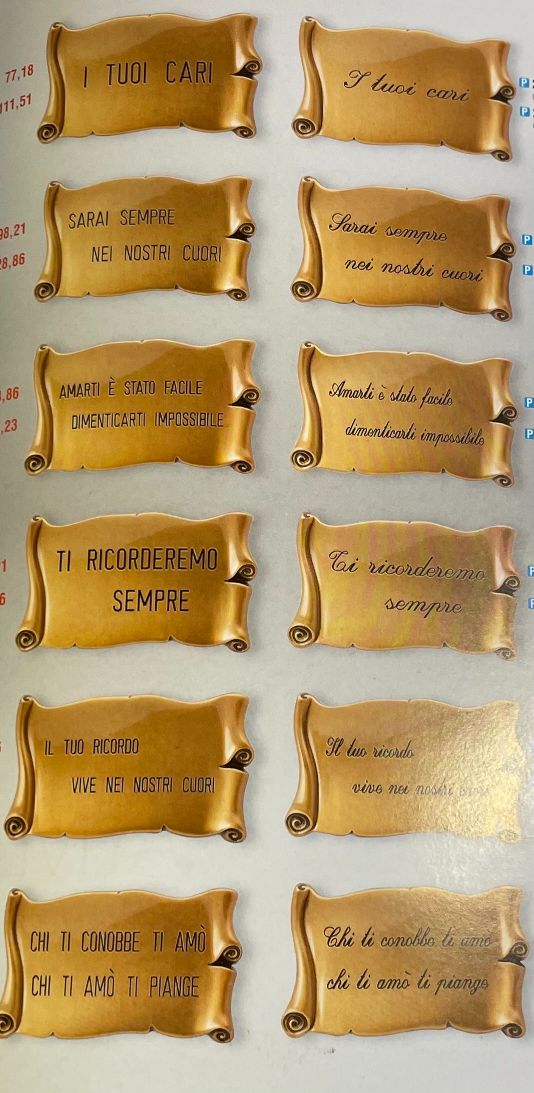 77,18
111,51
I TUOI CARI
I tuoi cari
P
P
98,21
28,86
SARAI SEMPRE
NEI NOSTRI CUORI
Sarai sempre
nei nostri cuori
P
P
,86
,23
AMARTI È STATO FACILE
DIMENTICARTI IMPOSSIBILE
Amarti è stato facile
dimenticarti impossibile
P
P
1
6
TI RICORDEREMO
SEMPRE
Ti ricorderemo
sempre
P
P
IL TUO RICORDO
VIVE NEI NOSTRI CUORI
Il tuo ricordo
vive nei nostri cuori
CHI TI CONOBBE TI AMÒ
CHI TI AMÒ TI PIANGE
Chi ti conobbe ti amò
chi ti amò ti piange